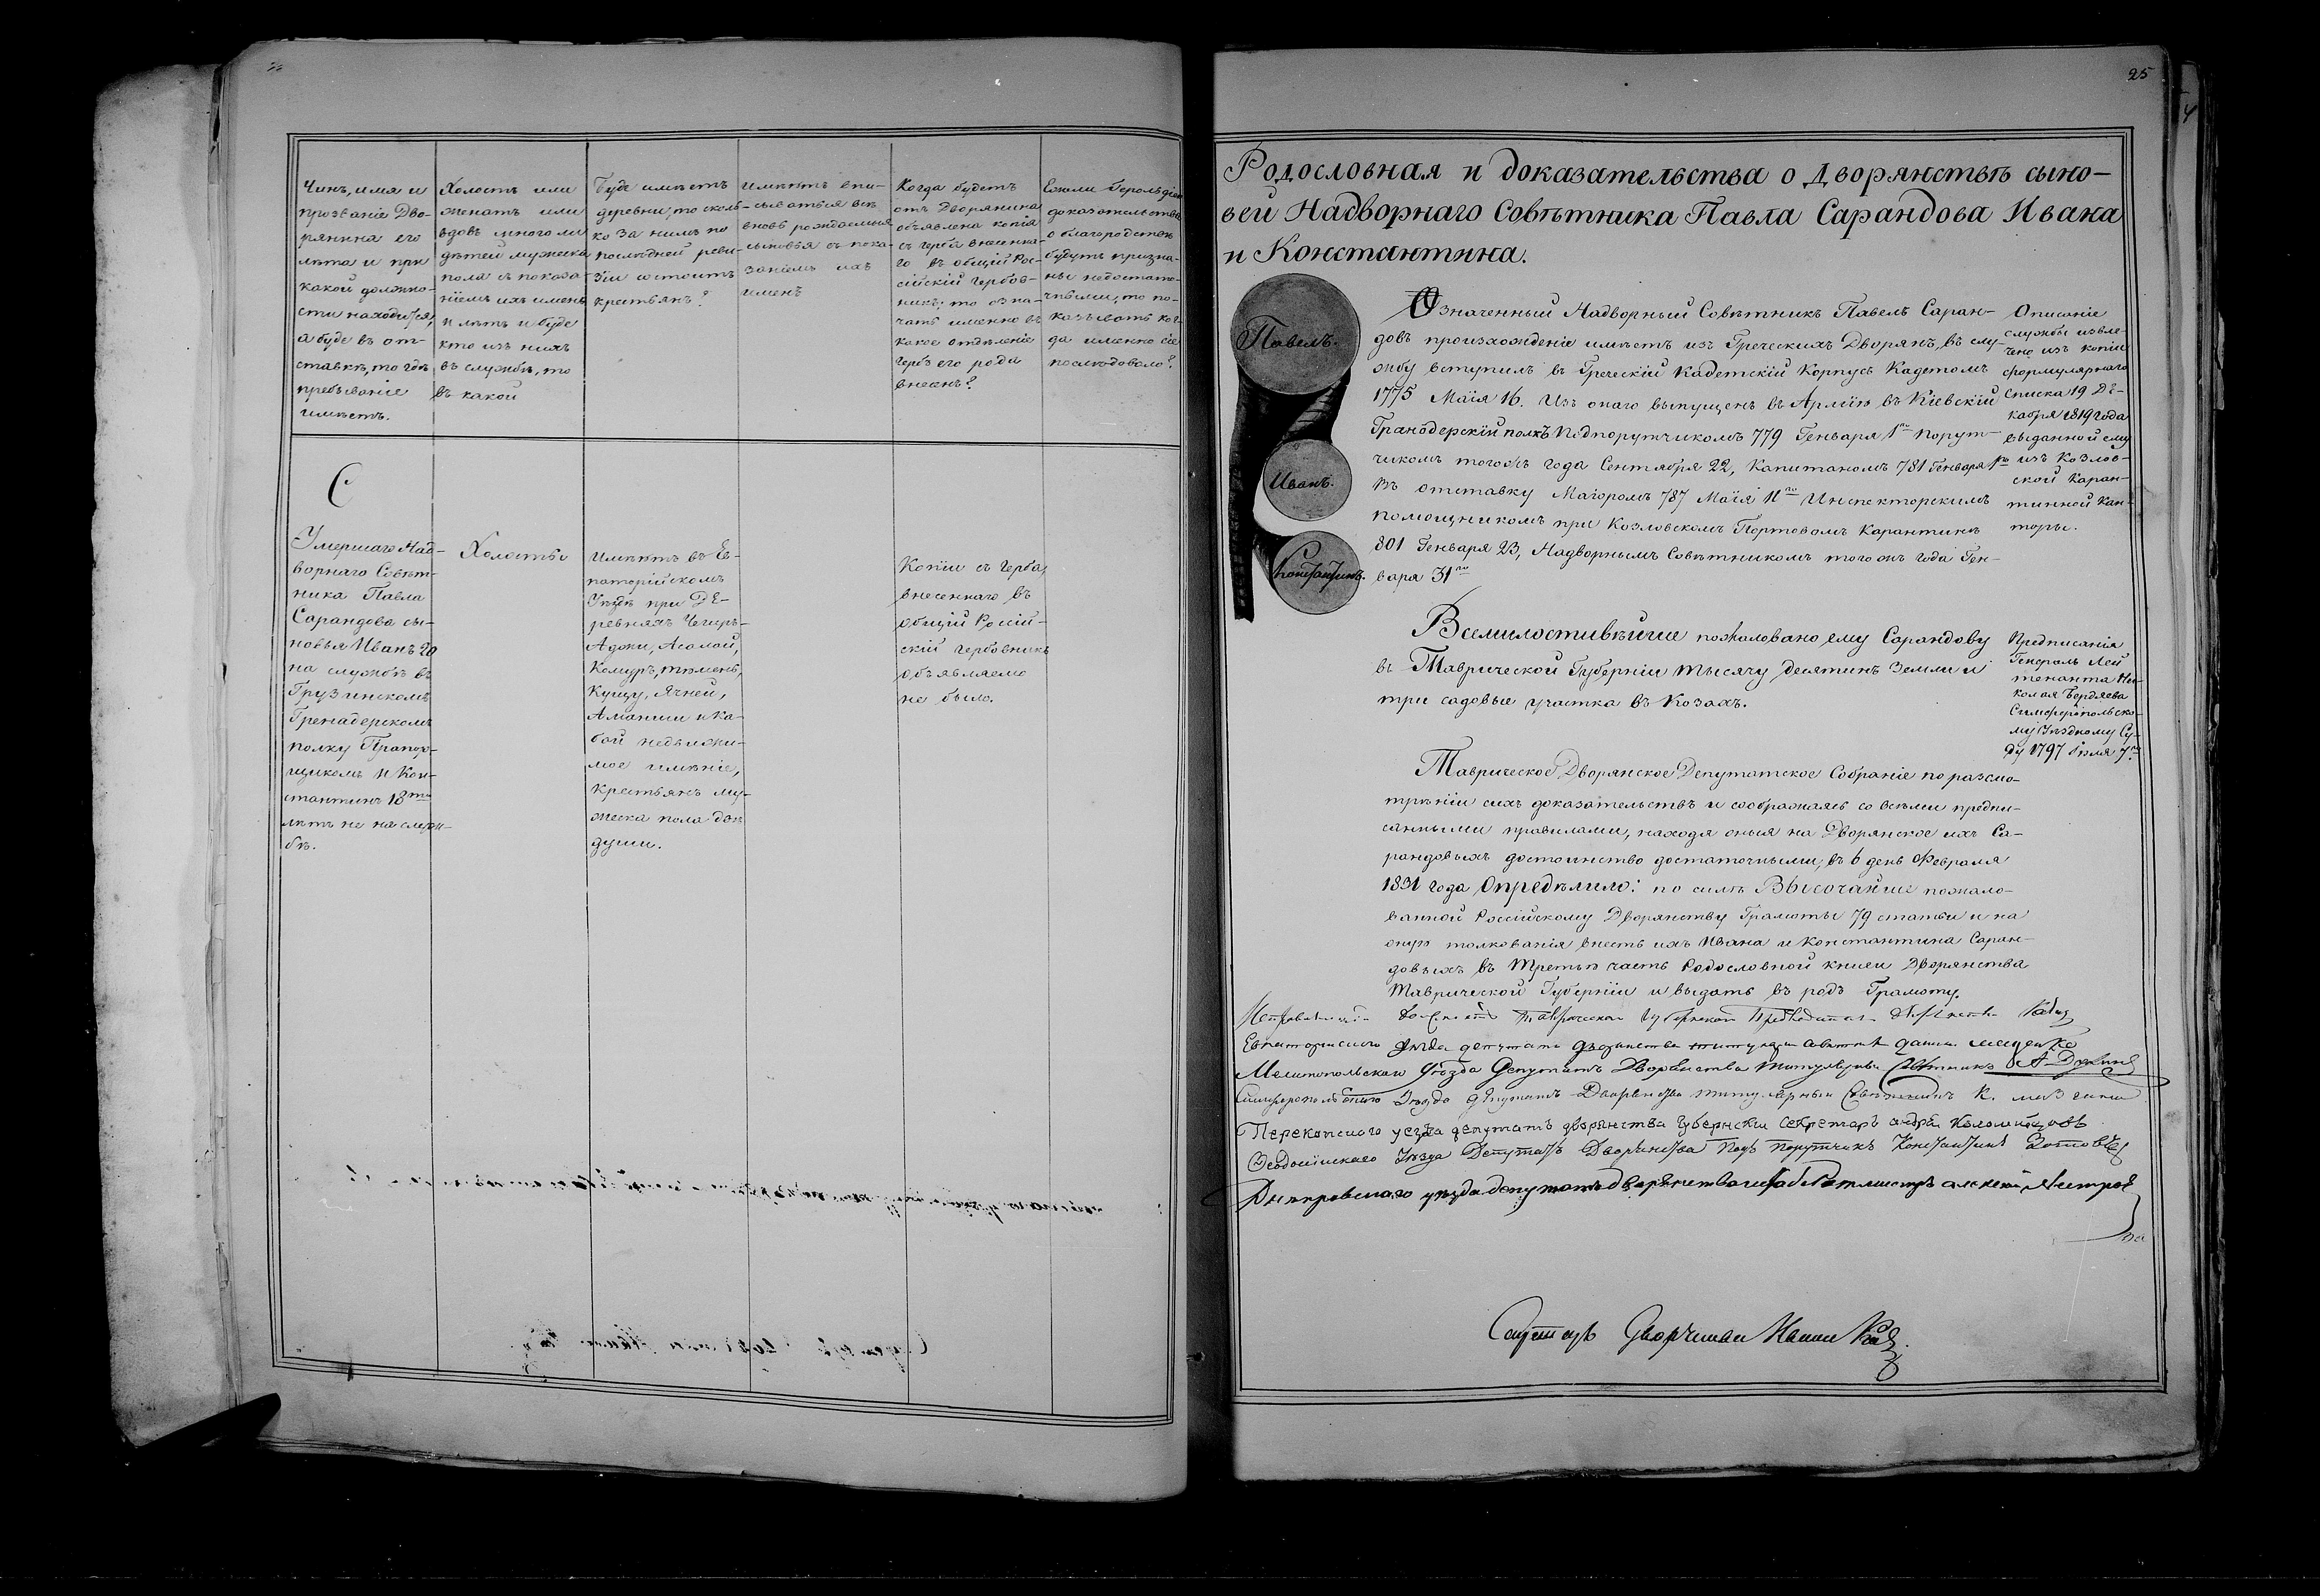 Чинъ, имя и
прозваніе Дво-
рянина его
лѣта и при
какой должно-
сти находится,
а буде въ от-
ставкѣ, то гдѣ
пребываніе
имѣетъ.
Холостъ или
женатъ или
вдовъ много ли
дѣтей мужеска
пола съ показа
ніемъ ихъ именъ
и лѣтъ и буде
кто изъ нихъ
въ службѣ, то
въ какой
Буде имѣетъ
деревни, то сколь-
ко за нимъ по
послѣдней реви-
зіи состоитъ
крестьянъ?
Имѣютъ впи-
сываться всѣ
вновь рождаемыя
сыновья съ пока-
заніемъ ихъ
именъ
Когда будетъ
отъ Дворянина
объявлена копія
съ герба внесенна-
го въ общій Рос-
сійскій Гербов-
никъ; то озна-
чать именно въ
какое отдѣленіе
гербъ его рода
внесенъ?
Ежели Герольдіею
доказательства
о благородствѣ
будутъ призна-
ны недостато-
чными, то по-
казывать ког-
да именно сіе
послѣдовало?
С
Умершаго Над-
ворнаго Совѣт-
ника Павла
Сарандова сы-
новья Иванъ 20
на службѣ въ
Грузинскомъ
Гренадерскомъ
полку Прапор-
щикомъ и Кон-
стантинъ 18ти
лѣтъ не на служ-
бѣ.
Холосты
Имѣютъ въ Ев-
паторійскомъ
Уѣздѣ при Де-
ревняхъ Чегиръ-
Аджи, Асалой,
Кущу, Ячкей,
Аманши и Ка-
бай недвижи-
мое имѣніе,
крестьянъ му-
жеска пола двѣ
души.
Копіи съ герба,
внесеннаго въ
общій Россій-
скій гербовникъ
объявляемо
не было.
25
Родословная и доказательства о дворянствѣ сыно-
вей Надворнаго Совѣтника Павла Сарандова Ивана
и Константина.
Павелъ.
Иванъ.
Константинъ.
Означенный Надворный Совѣтникъ Павелъ Саран-
довъ произхожденіе имѣетъ изъ Греческихъ Дворянъ, въ слу-
жбу вступилъ въ Греческій Кадетскій Корпусъ Кадетомъ
1775 Маія 16. Изъ онаго выпущенъ въ Армію въ Кіевскій
Гранодерскій полкъ Подпорутчикомъ 779 Генваря 1го Порут-
чикомъ тогожъ года Сентября 22, Капитаномъ 781 Генваря 1го
въ отставку Маіоромъ 787 Маія 11го Инспекторскимъ
помощникомъ при Козловскомъ Портовомъ Карантинѣ
801 Генваря 23, Надворнымъ Совѣтникомъ того жъ года Ген-
варя 31го
Описаніе
службы извле-
чено изъ копіи
формулярнаго
списка 19 Де-
кабря 1819 года
выданной ему
изъ Козлов-
ской Каран-
тинной Кан-
торы.
Всемилостивѣйше пожаловано ему Сарандову
въ Таврической Губерніи тысячу десятинъ земли и
три садовые участка въ Козахъ.
Предписанія
Генералъ Лей
тенанта Ни-
колая Бердяева
Симферопольско-
му Уѣздному Су-
ду 1797 Іюля 7го
Таврическое Дворянское Депутатское Собраніе по разсмо-
трѣніи сихъ доказательствъ и соображаясь со всѣми предпи-
санными правилами, находя оныя на Дворянское ихъ Са-
рандовыхъ достоинство достаточными, въ 6 день Февраля
1831 года Опредѣлило: по силѣ Высочайше пожало-
ванной Россійскому Дворянству Грамоты 79 статьи и на
оную толкованія внесть ихъ Ивана и Константина Саран-
довыхъ въ Третью часть Родословной книги Дворянства
Таврической Губерніи и выдать въ родъ Грамоту.
Евпаторійскаго уѣзда депутатъ дворянства титулярн совѣтни
Мелитопольскаго Уѣзда Депутатъ Дворянства титулярный Совѣтникъ
Симферопольскаго Уѣзда Депутатъ Дворянства титулярный Совѣтникъ К.
Перекопскаго уезда депутатъ дворянства Губернски секретаръ андрѣй
Ѳеодосійскаго Уѣзда Депутатъ Дворянства Подъ порутчикъ Константинъ
Днѣпровскаго уѣзда депутатъ дворянства
Секретарь